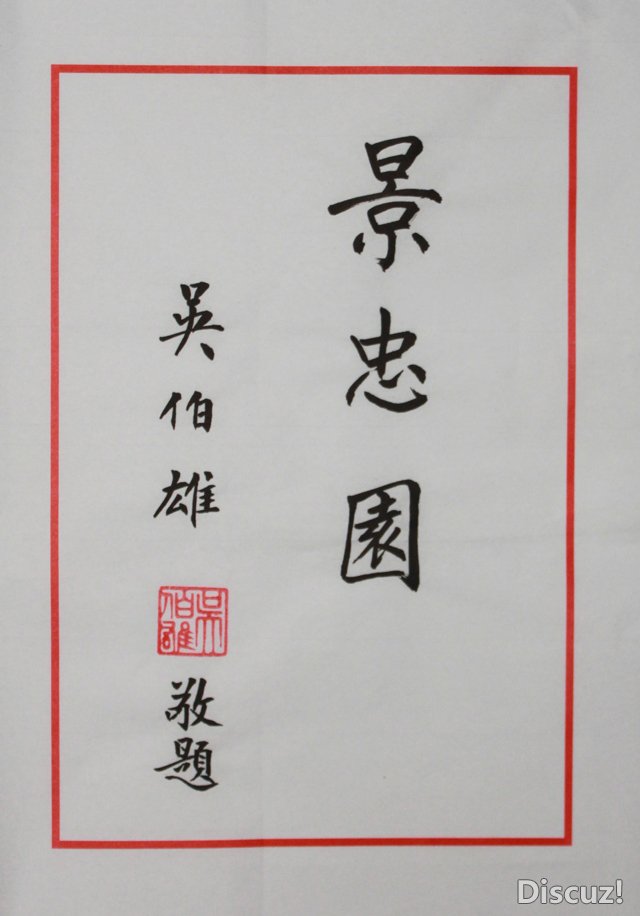 景忠園
吳伯雄
吳伯雄
敬題
Discuz!